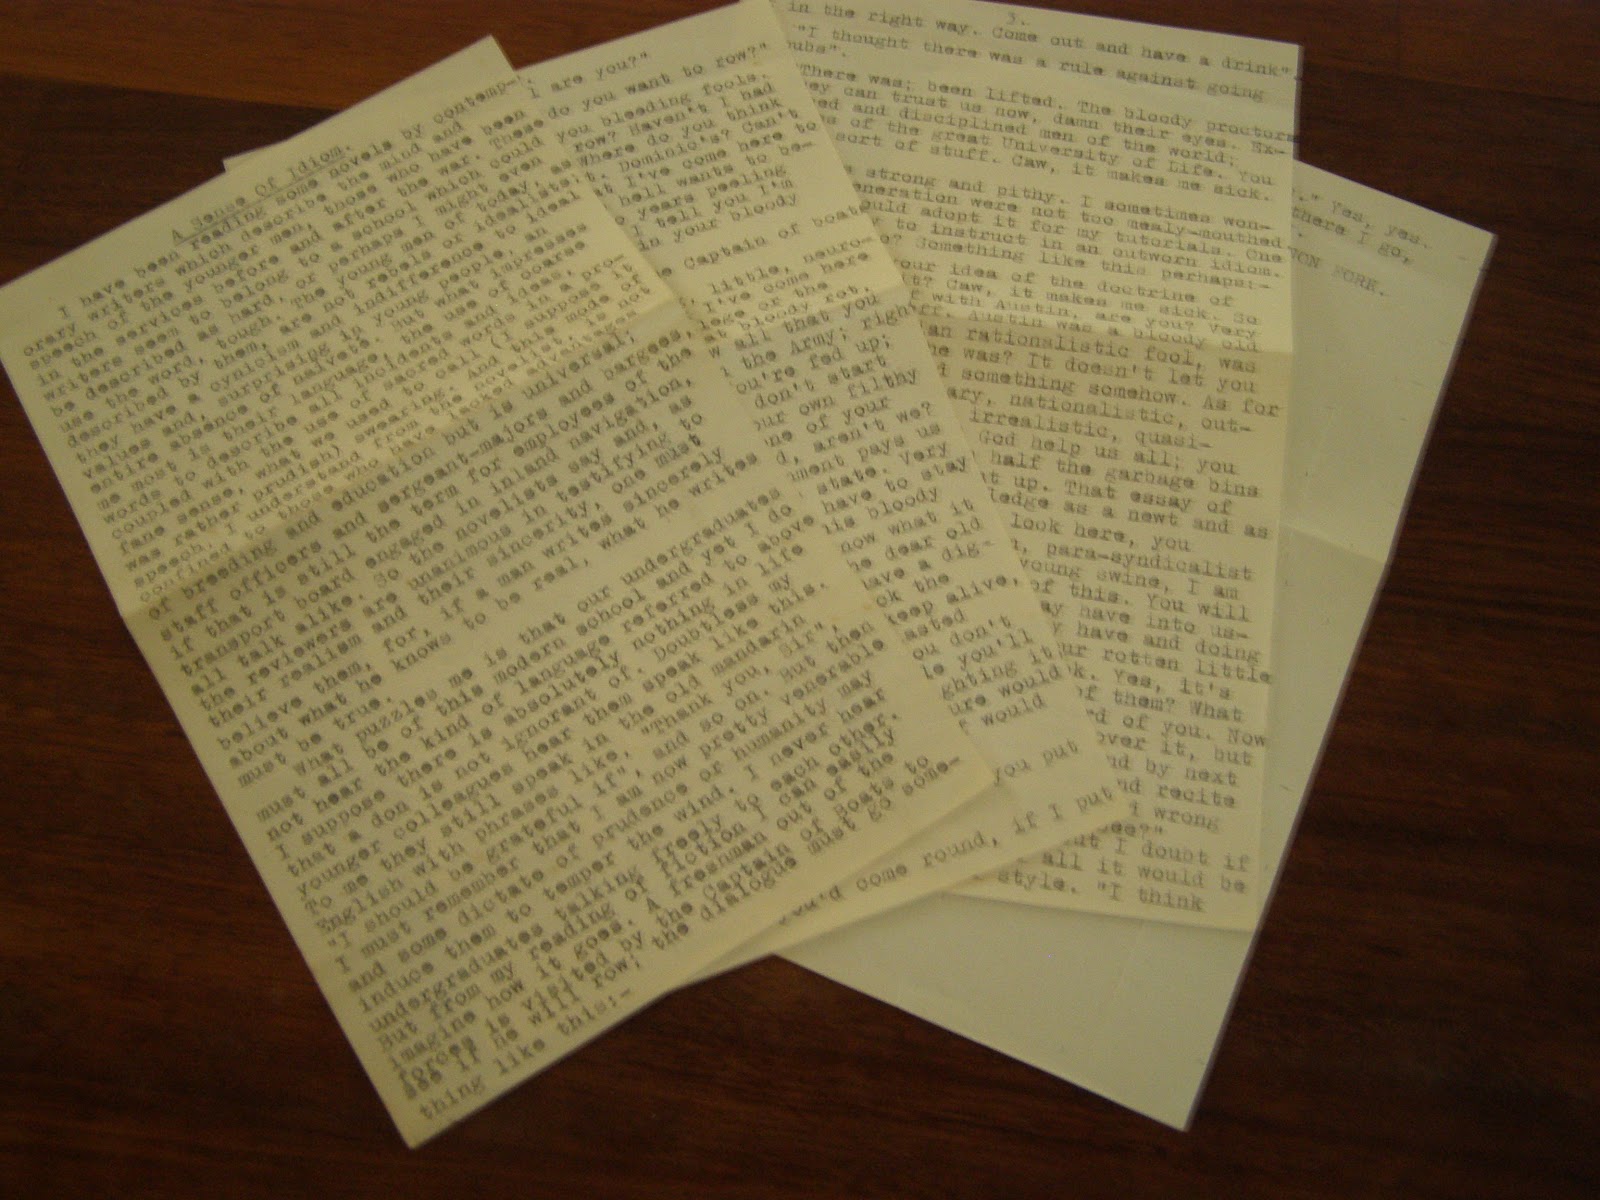 A Sense Of Idiom.
I have been reading some novels by contemp-
orary writers which describe the mind and
speech of the younger men, those who have been
in the services before and after the war. These
writers seem to belong to a school which could
be described as hard, or perhaps I might even
use the word, tough. The young men of today, as
described by them, are not rebels or idealists;
they have a cynicism and indifference to ideal
values and, surprising in young people, an
entire absence of naiveté. But what impresses
me most is their language, the use of coarse
words to describe all incidents and ideas,
coupled with the use of sacred words in a pro-
fane sense, what we used to call (I suppose it
was rather prudish) swearing. And this mode of
speech, I understand from the novelist, is not
confined to those who have lacked advantages
of breeding and education but is universal;
staff officers and sergeant-majors and bargees,
if that is still the term for employees of the
transport board engaged in inland navigation,
all talk alike. So the novelists say and, as
the reviewers are unanimous in testifying to
their realism and their sincerity, one must
believe them, for, if a man writes sincerely
about what he knows to be real, what he writes
must be true.
What puzzles me is that our undergraduates
must all be of this modern school and yet I do
not hear the kind of language referred to above
I suppose there is absolutely nothing in life
that a don is not ignorant of. Doubtless my
younger colleagues hear them speak like this.
To me they still speak in the old mandarin
English with phrases like, "Thank you, Sir",
"I should be grateful if", and so on. But then
I must remember that I am now pretty venerable
and some dictate of prudence or humanity may
induce them to temper the wind. I never hear
undergraduates talking freely to each other.
But from my reading of fiction I can easily
imagine how it goes. A freshman out of the
forces is visited by the Captain of Boats to
see if he will row; the dialogue must go some-
thing like this:-
I are you?"
do you want to row?"
you bleeding fools.
row? Haven't I had
Where do you think
t. Dominic's? Can't
at I've come here to
hell wants to be-
o years peeling
I tell you I'm
in your bloody
e Captain of boats
, little, neuro-
I've come here
lege or the
at bloody rot.
w all that you
the Army; right
ou're fed up;
don't start
our own filthy
ne of your
d, aren't we?
nment pays us
state. Very
have to stay
his bloody
now what it
he dear old
have a dig-
ck the
keep alive,
asted
ou don't
le you'll
ghting it
ure would
f would
you put
ou'd come round, if I put
3.
in the right way. Come out and have a drink".
"I thought there was a rule against going
pubs".
There was; been lifted. The bloody proctors
ey can trust us now, damn their eyes. Ex-
ed and disciplined men of the world;
s of the great University of Life. You
sort of stuff. Caw, it makes me sick.
e strong and pithy. I sometimes won-
eneration were not too mealy-mouthed
ould adopt it for my tutorials. One
g to instruct in an outworn idiom.
o? Something like this perhaps:-
your idea of the doctrine of
t? Caw, it makes me sick. So
f with Austin, are you? Very
ff. Austin was a bloody old
an rationalistic fool, was
he was? It doesn't let you
d something somehow. As for
ary, nationalistic, out-
irrealistic, quasi-
God help us all; you
half the garbage bins
at up. That essay of
ledge as a newt and as
look here, you
, para-syndicalist
young swine, I am
of this. You will
ay have into us-
y have and doing
ur rotten little
k. Yes, it's
of them? What
rd of you. Now
over it, but
nd by next
nd recite
i wrong
see?"
ut I doubt if
all it would be
style. "I think
." Yes, yes.
there I go,
VON FORK.